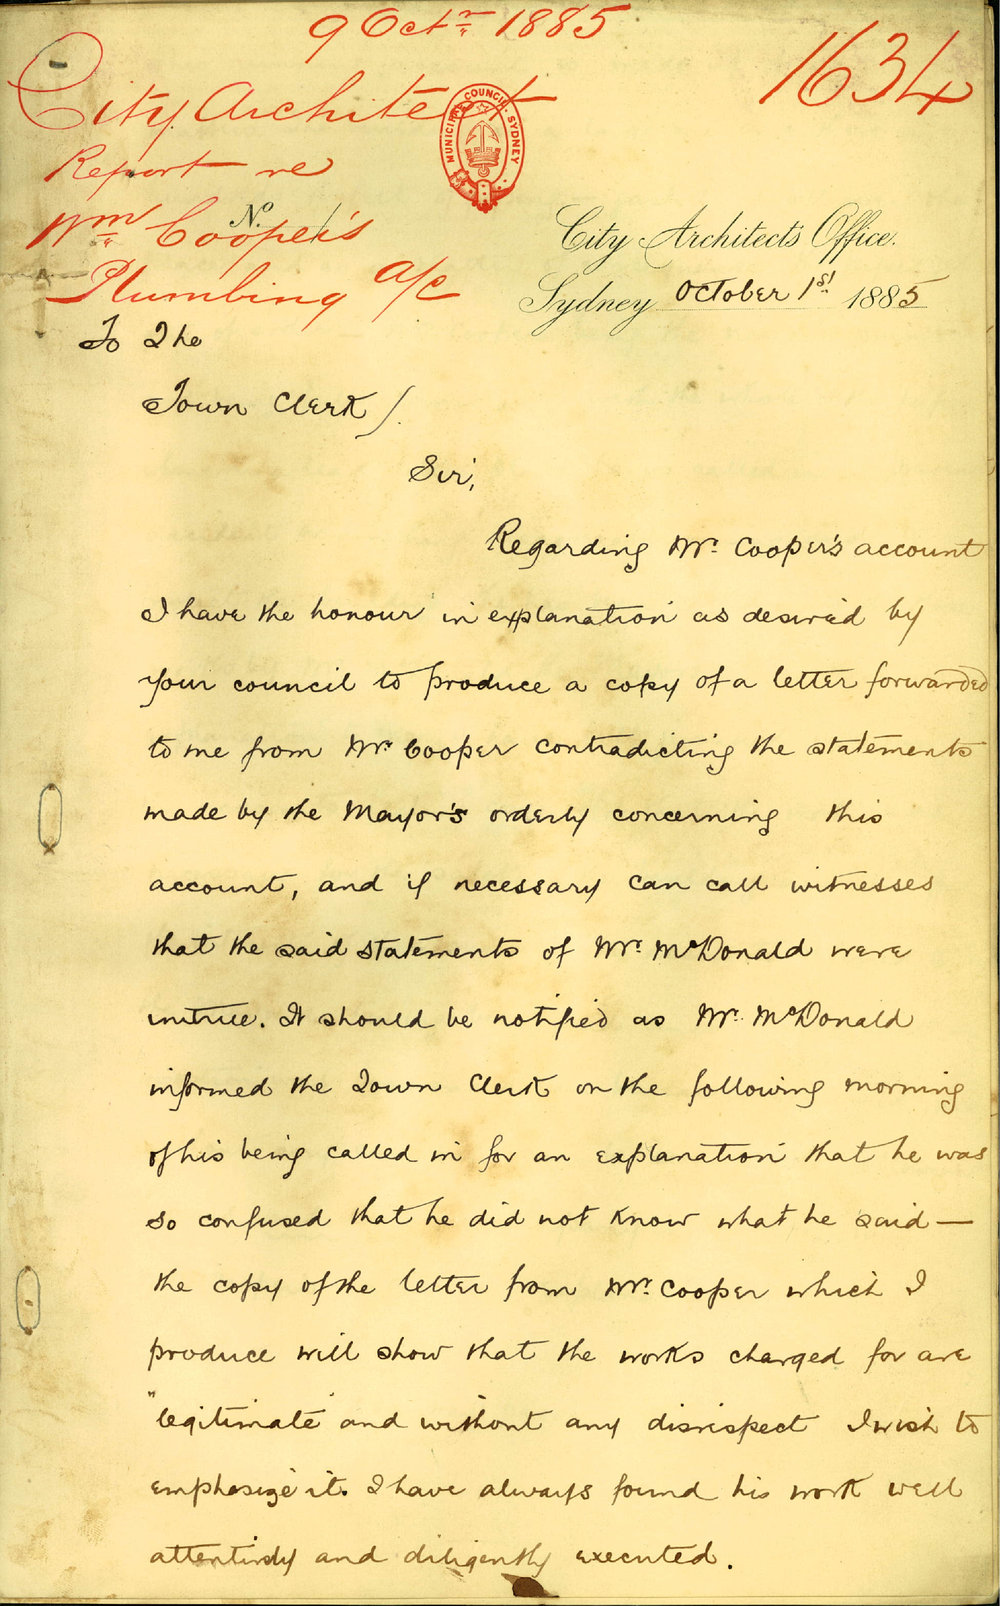 9 Octr 1885
1634
City Architect
Report re
Wm Cooper's
Plumbing a/c
MUNICIPAL COUNCIL SYDNEY
No.
City Architect's Office.
Sydney October 1st 1885
To The
Town Clerk /.
Sir,
Regarding Mr. Cooper's account
I have the honour in explanation as desired by
your council to produce a copy of a letter forwarded
to me from Mr. Cooper contradicting the statements
made by the Mayor's orderly concerning this
account, and if necessary can call witnesses
that the said statements of Mr. McDonald were
untrue. It should be notified as Mr. McDonald
informed the Town Clerk on the following morning
of his being called in for an explanation that he was
so confused that he did not know what he said —
the copy of the letter from Mr. Cooper which I
produce will show that the works charged for are
"legitimate" and without any disrespect I wish to
emphasize it. I have always found his work well
attentively and diligently executed.